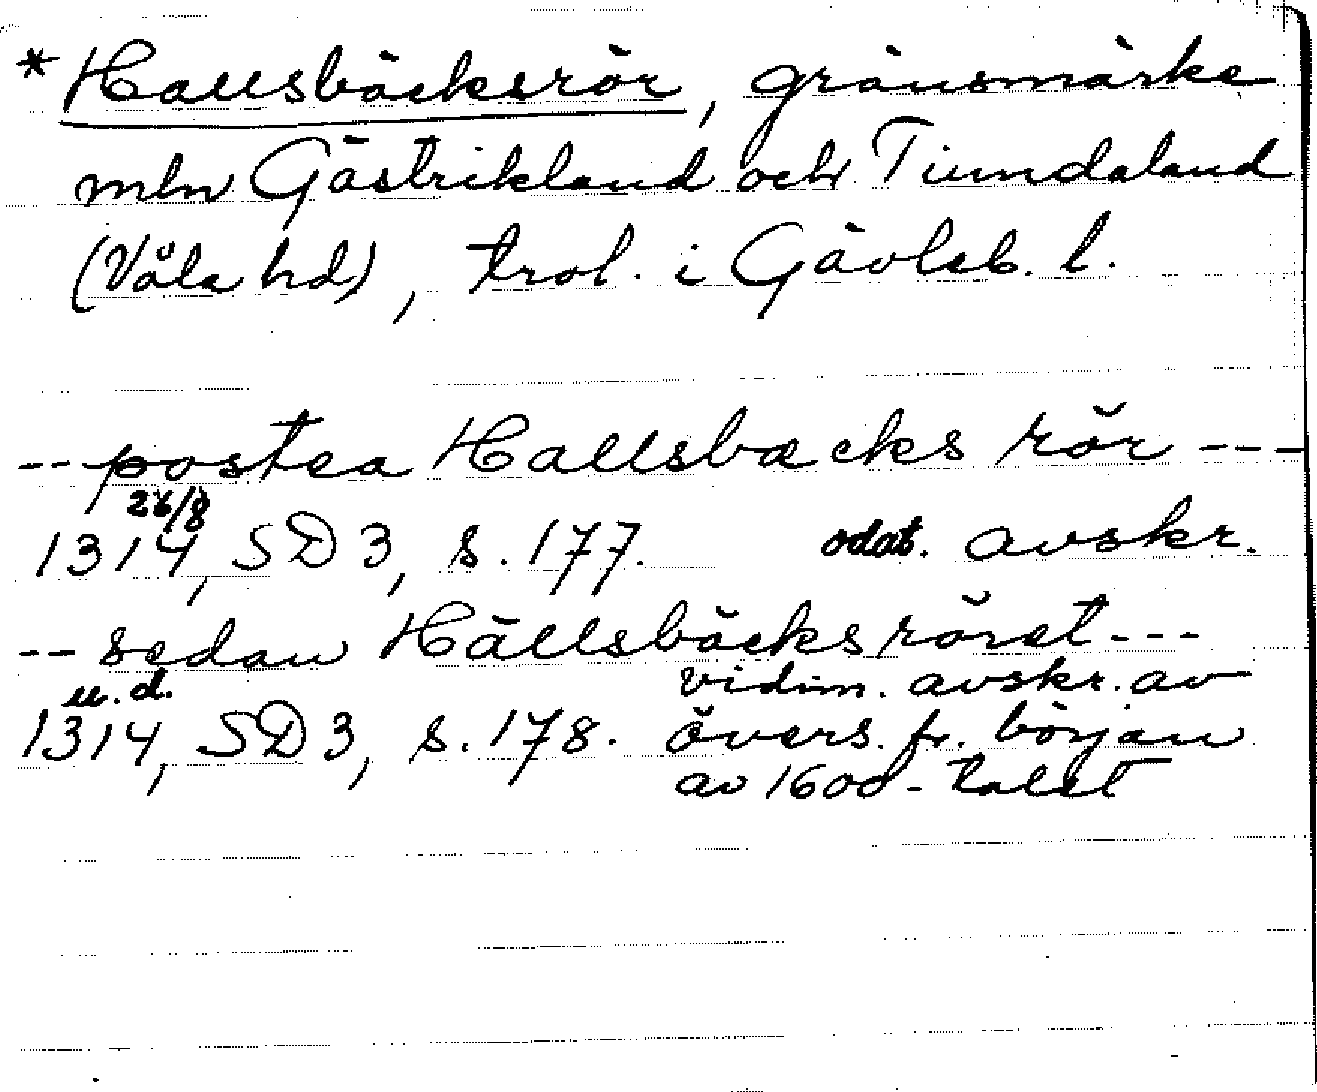 * Hallsbäcksrör, gränsmärke
mln Gästrikland och Tiundaland
(Våla hd), trol. i Gävleb. l.
-- postea Hallsbæcks rör ---
26/8
1314, SD 3, s. 177. odat. avskr.
-- sedan Hällsbäcks röret ---
u. d. vidim. avskr. av
1314, SD 3, s. 178. övers. fr. början
av 1600-talet